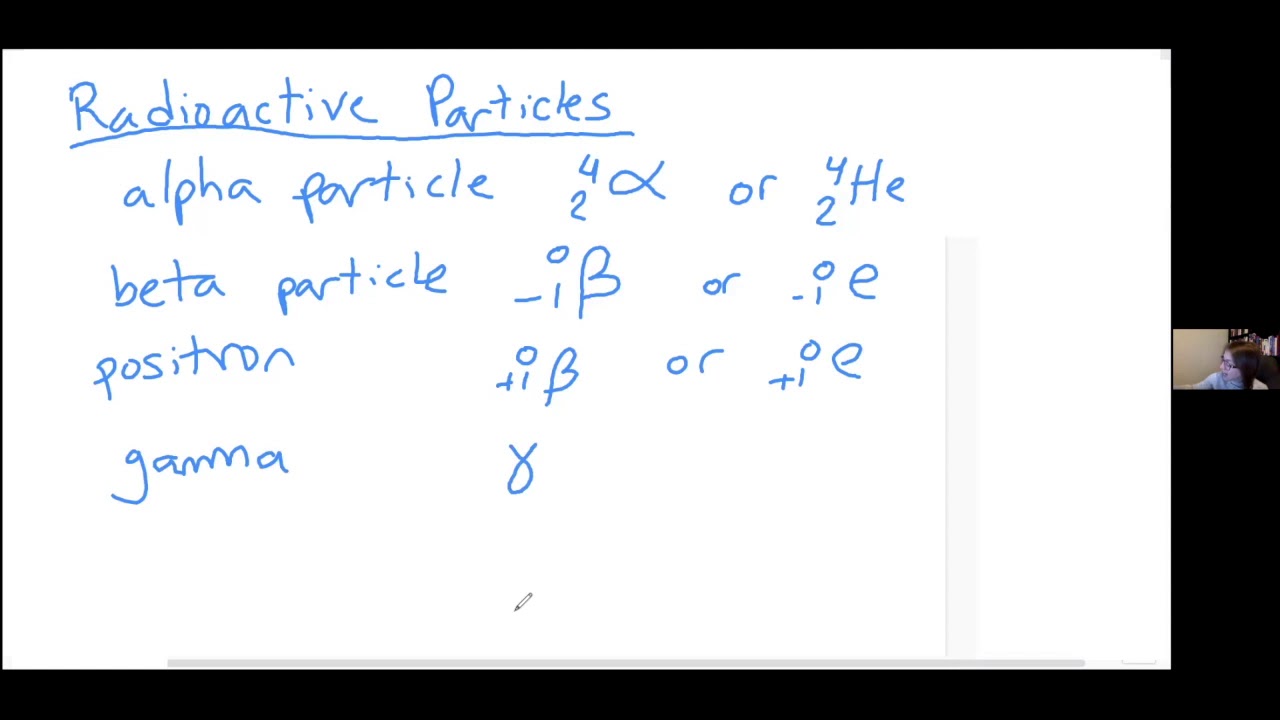 Radioactive Particles
alpha particle ⁴₂α or ⁴₂He
beta particle ⁰₋₁β or ⁰₋₁e
positron ⁰₊₁β or ⁰₊₁e
gamma γ